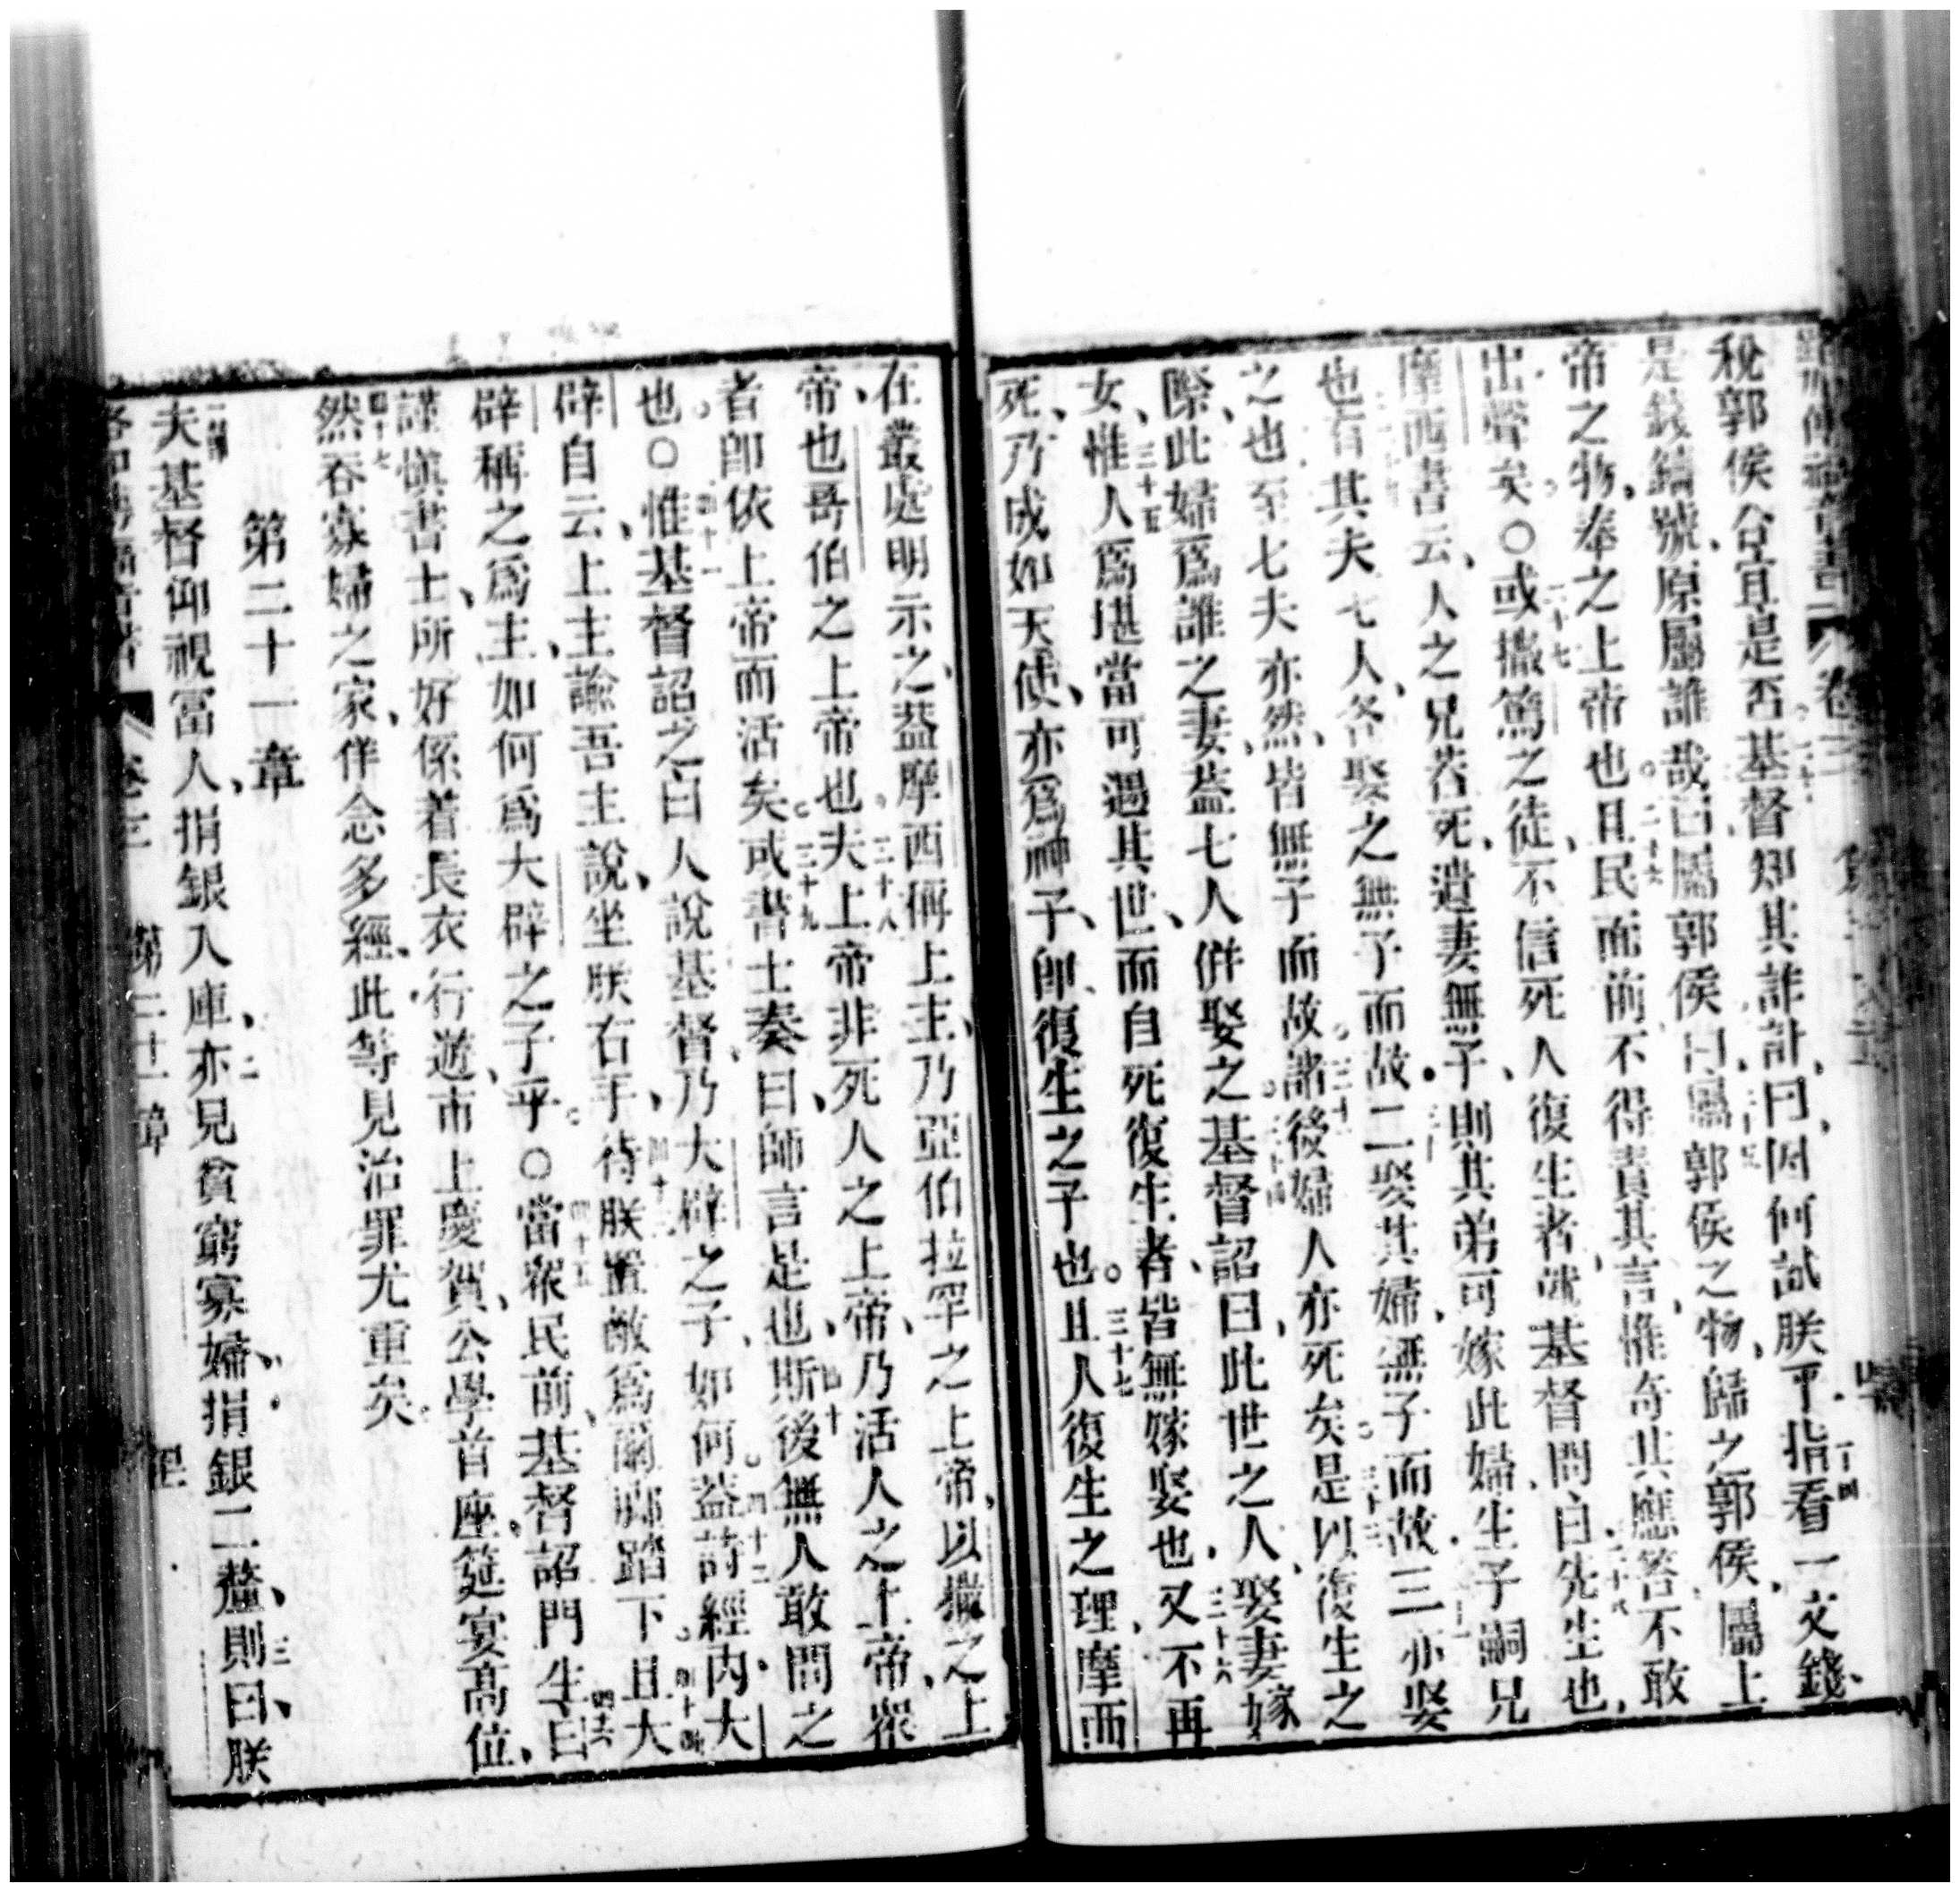 路加傳福音書 卷三
稅郭侯合宜是否二十三基督知其詐計曰因何試朕乎二十四指看一文錢
是錢鐫號原屬誰哉曰屬郭侯二十五曰屬郭侯之物歸之郭侯屬上
帝之物奉之上帝也二十六且民面前不得責其言惟奇其應答不敢
出聲矣○二十七或撒篤之徒不信死人復生者就基督問曰二十八先生也
摩西書云人之兄若死遺妻無子則其弟可嫁此婦生子嗣兄
也二十九有其夫七人各娶之無子而故三十二娶其婦無子而故三十一三亦娶
之也至七夫亦然皆無子而故三十二諸後婦人亦死矣三十三是以復生之
際此婦爲誰之妻蓋七人併娶之三十四基督詔曰此世之人娶妻嫁
女三十五惟人爲堪當可遇其世而自死復生者皆無嫁娶也三十六又不再
死乃成如天使亦爲神子卽復生之子也三十七且人復生之理摩西
在叢處明示之蓋摩西稱上主乃亞伯拉罕之上帝以撒之上
帝也哥伯之上帝也三十八夫上帝非死人之上帝乃活人之上帝衆
者卽依上帝而活矣三十九或書士奏曰師言是也四十斯後無人敢問之
也○四十一惟基督詔之曰人說基督乃大辟之子如何四十二蓋詩經內大
辟自云上主諭吾主說坐朕右手四十三待朕置敵爲爾腳踏下四十四且大
辟稱之爲主如何爲大辟之子乎○四十五當衆民前基督詔門生曰四十六
謹愼書士所好係着長衣行遊市上慶賀公學首座筵宴高位
四十七然吞寡婦之家佯念多經此等見治罪尤重矣
第二十一章
一節夫基督仰視富人捐銀入庫二亦見貧窮寡婦捐銀二釐三則曰朕
路加傳福音書 卷三 第二十一章